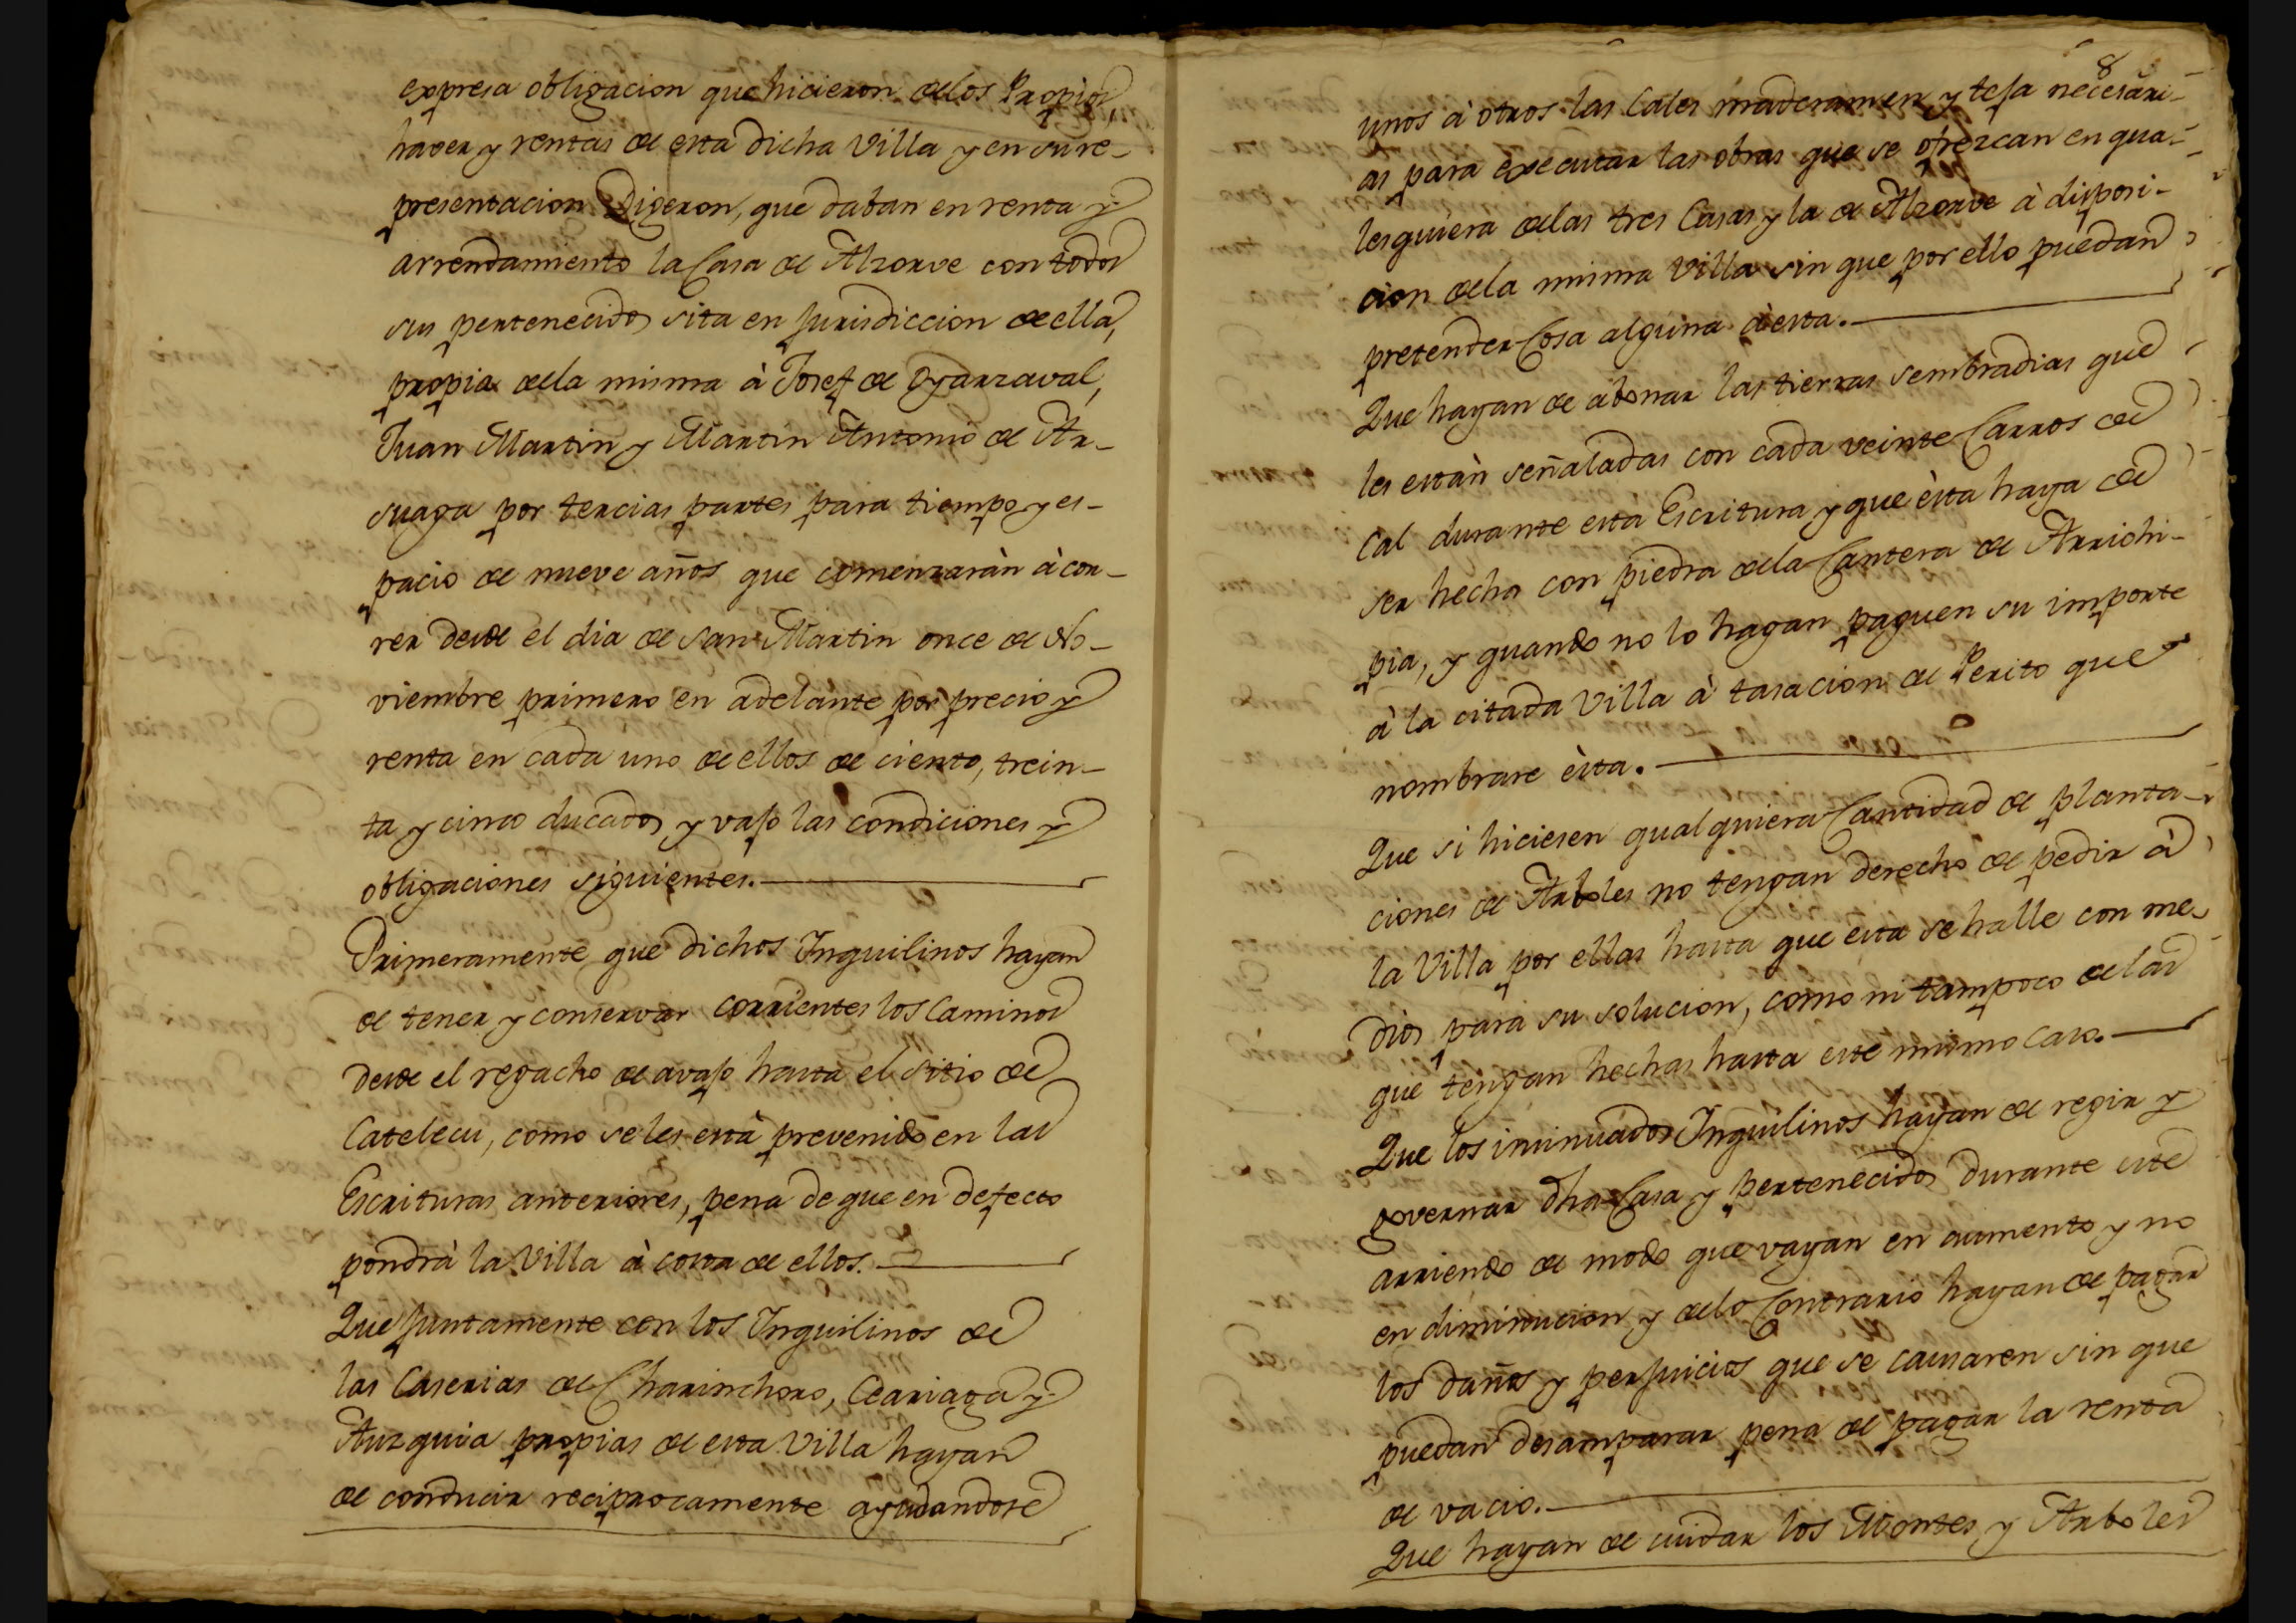 expresa obligacion que hicieron de los Propios,
haver y rentas de esta dicha Villa y en su re-
presentacion Digeron, que daban en renta y
arrendamiento la Casa de Alzorve con todos
sus pertenecidos sita en jurisdiccion de ella,
propia de la misma à Josef de Oyarzaval,
Juan Martin y Martin Antonio de Ar-
suaga por tercias partes para tiempo y es-
pacio de nueve años que comenzaràn à cor-
rer desde el dia de San Martin once de No-
viembre primero en adelante por precio y
renta en cada uno de ellos de ciento, trein-
ta y cinco ducados y vajo las condiciones y
obligaciones siguientes.
Primeramente que dichos Inquilinos hayan
de tener y conservar corrientes los Caminos
desde el regacho de avajo hasta el sitio de
Catelecu, como se les està prevenido en las
Escrituras anteriores, pena de que en defecto
pondrà la Villa à costa de ellos.
Que juntamente con los Inquilinos de
las Caserias de Charinchoro, Ceariaga y
Auzquia propias de esta Villa hayan
de conducir reciprocamente ayudandose
8
unos à otros las Cales maderamen y teja necesari-
as para executar las obras que se ofrezcan en qua-
lesquiera de las tres Casas y la de Alzorve à disposi-
cion de la misma Villa sin que por ello puedan
pretender Cosa alguna de esta.
Que hayan de abonar las tierras sembradias que
les estàn señaladas con cada veinte Carros de
Cal durante esta Escritura y que èsta haya de
ser hecha con piedra de la Cantera de Arrichi-
pia, y quando no lo hagan paguen su importe
à la citada Villa à tasacion de Perito que
nombrare èsta.
Que si hiciesen qualquiera Cantidad de planta-
ciones de Arboles no tengan derecho de pedir à
la Villa por ellas hasta que èsta se halle con me-
dios para su solucion, como ni tampoco de las
que tengan hechas hasta este mismo Caso.
Que los insinuados Inquilinos hayan de regir y
governar dha Casa y pertenecidos durante este
arriendo de modo que vayan en aumento y no
en diminucion y de lo Contrario hayan de pagar
los daños y perjuicios que se causaren sin que
puedan desamparar pena de pagar la renta
de vacio.
Que hayan de cuidar los Montes y Arboles